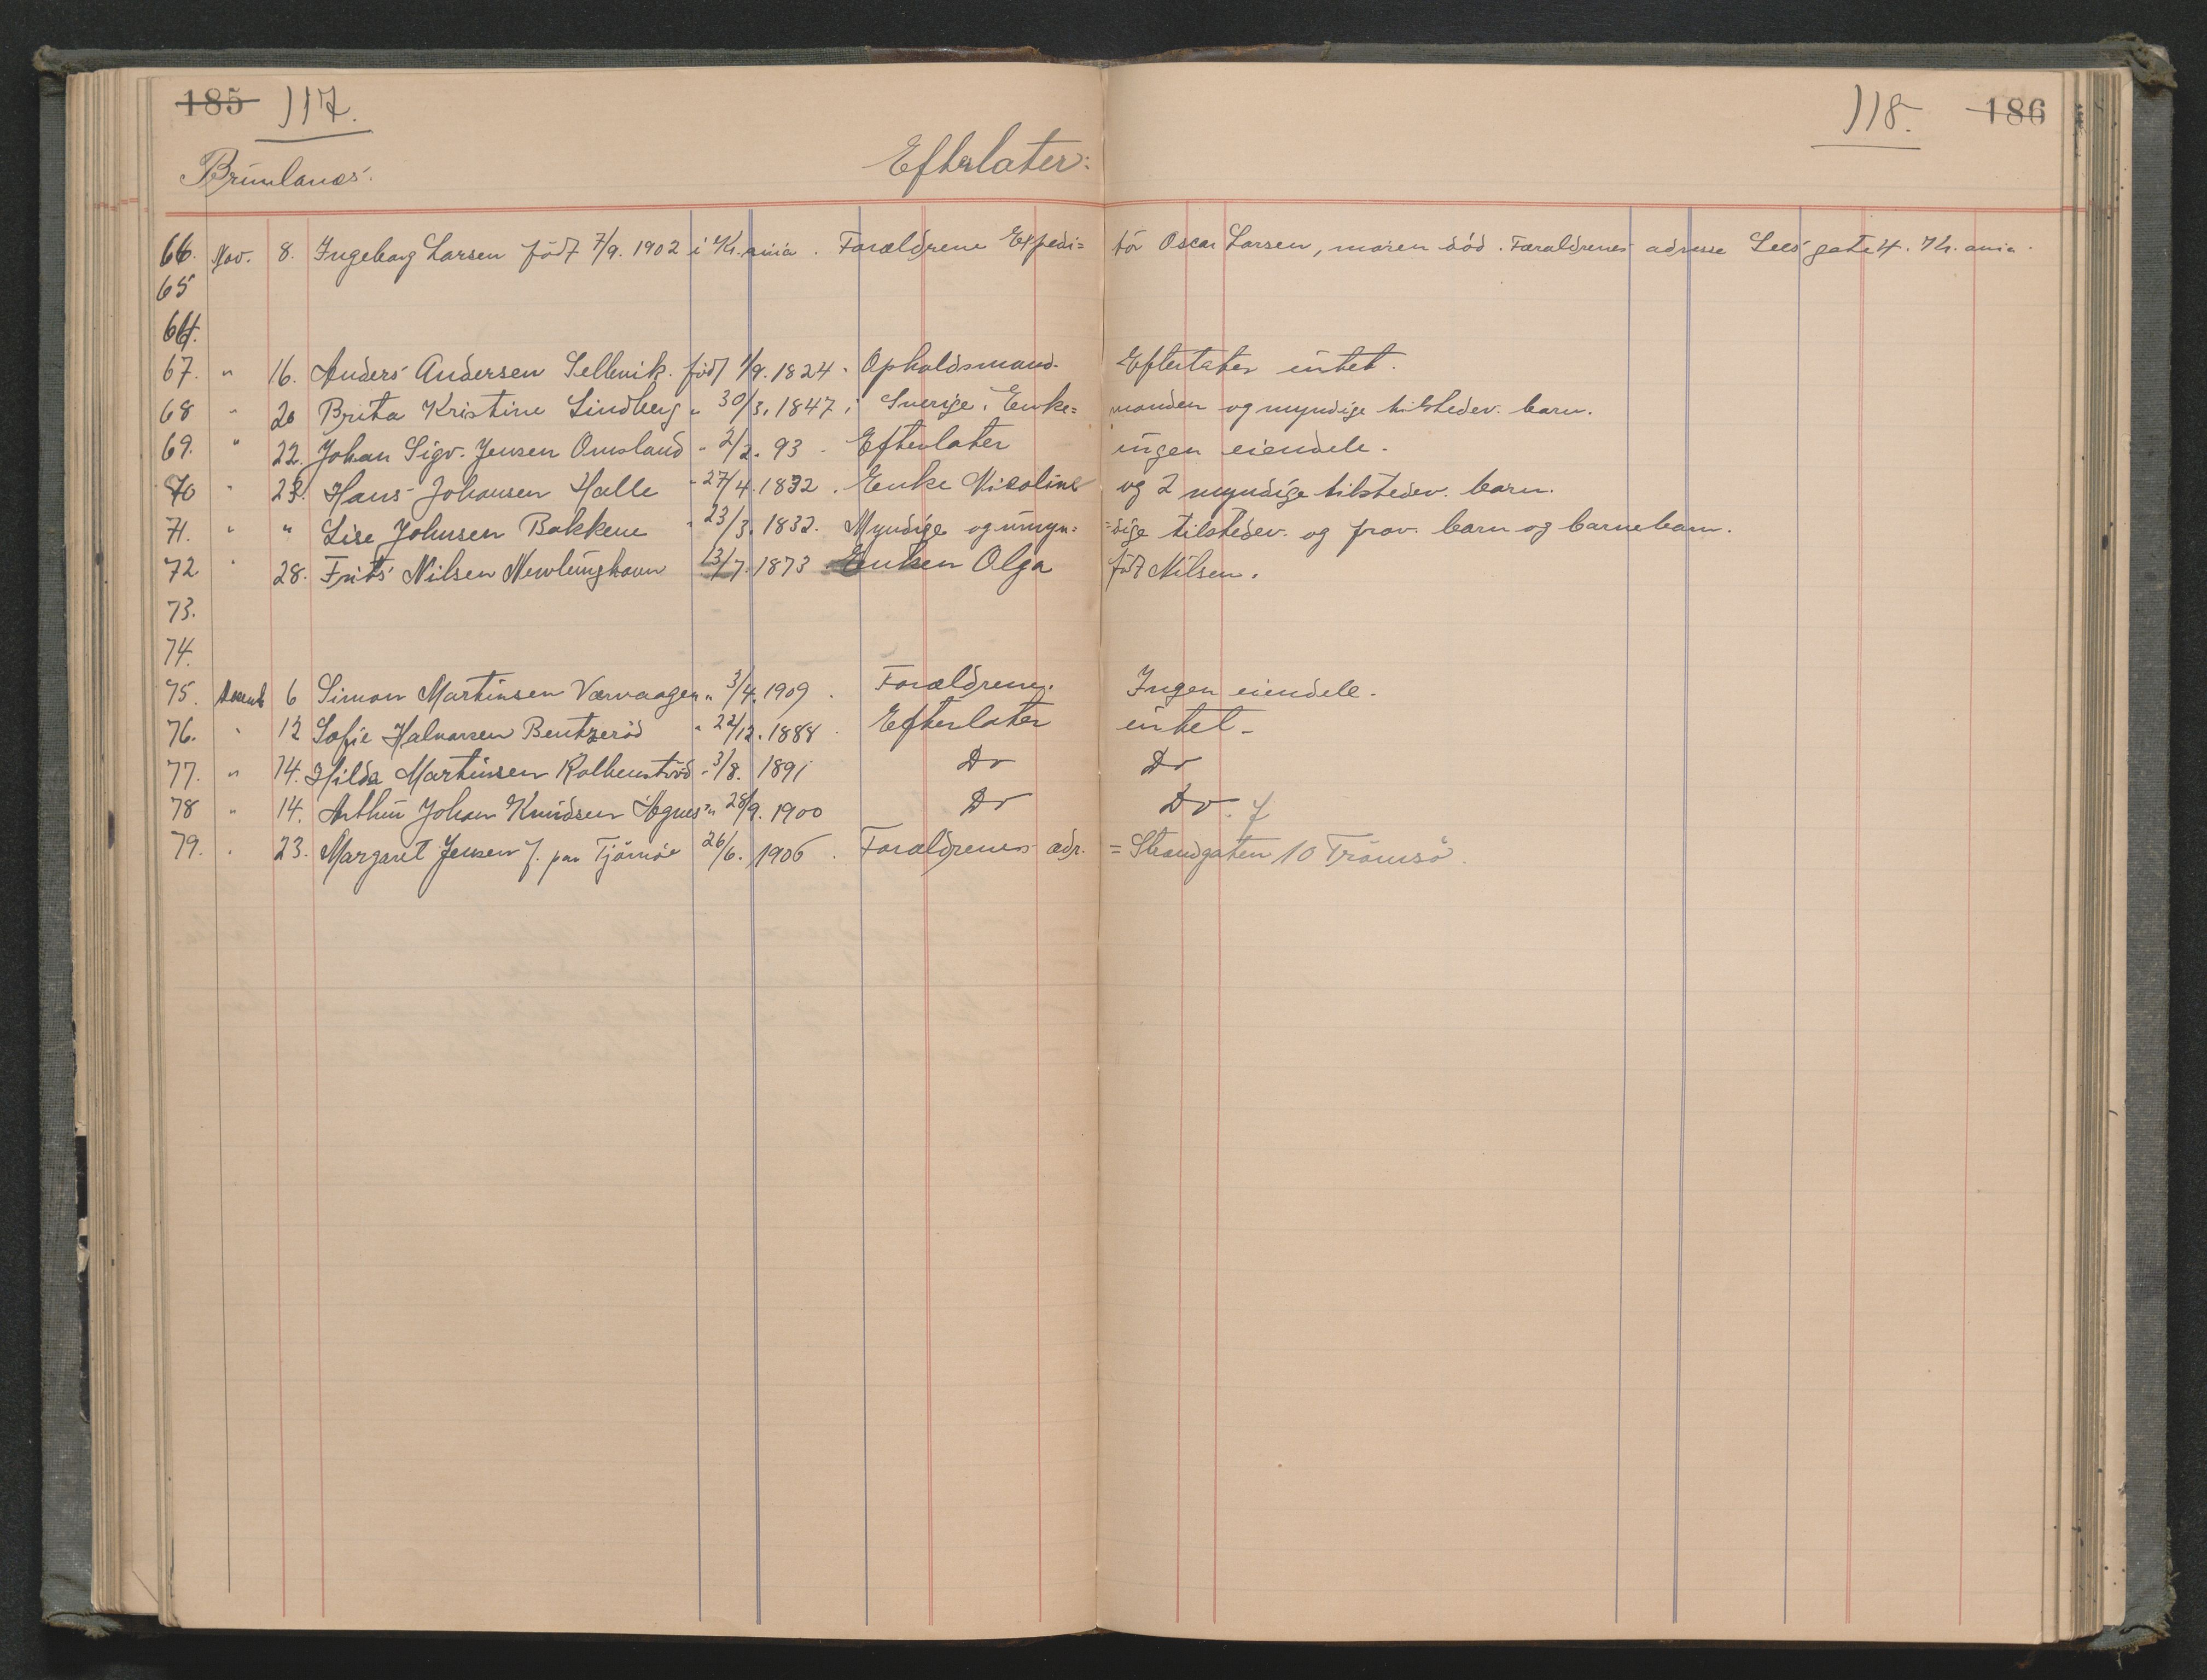 185 117.
118. 186
Brunlanæs.
Efterlater:
66. Nov. 8. Ingeborg Larsen født 7/9. 1902 i Kr.ania. Forældrene Expedi= tør Oscar Larsen, moren død. Forældrenes adresse gate 4. Kr.ania.
65
64.
67. " 16. Anders Andersen Sellevik. født 1/9. 1824. Opholdsmand. Efterlater intet.
68 " 20 Brita Kristine Lindberg " 30/3. 1847 i Sverige. Enke= manden og myndige tilstedev. barn.
69. " 22. Johan Sigv. Jensen Omsland " 2/2. 93. Efterlater ingen eiendele.
70 " 23. Hans Johansen Halle " 27/4. 1832. Enke Nicoline og 2 myndige tilstedev. barn.
71. " " Lise Johnsen Bakkene " 23/3. 1832. Myndige og umyn= =dige tilstedev. og frav. barn og barnebarn.
72 " 28. Frits Nilsen Nevlunghavn 13/7. 1873 Enken Olga født Nilsen.
73.
74.
75. Decemb 6 Simon Martinsen Værvaagen " 3/4. 1909. Forældrene. Ingen eiendele.
76. " 12 Sofie Halvorsen Bentzerød " 22/12. 1888. Efterlater intet.
77. " 14. Hilda Martinsen " 3/8. 1891 Do Do
78 " 14. Arthur Johan Knudsen Agnes " 28/9. 1900 Do Do.
79. " 23. Margaret Jensen f. paa Tjømøe 26/6. 1906. Forældrenes adr. = Strandgaten 10 Tromsø.